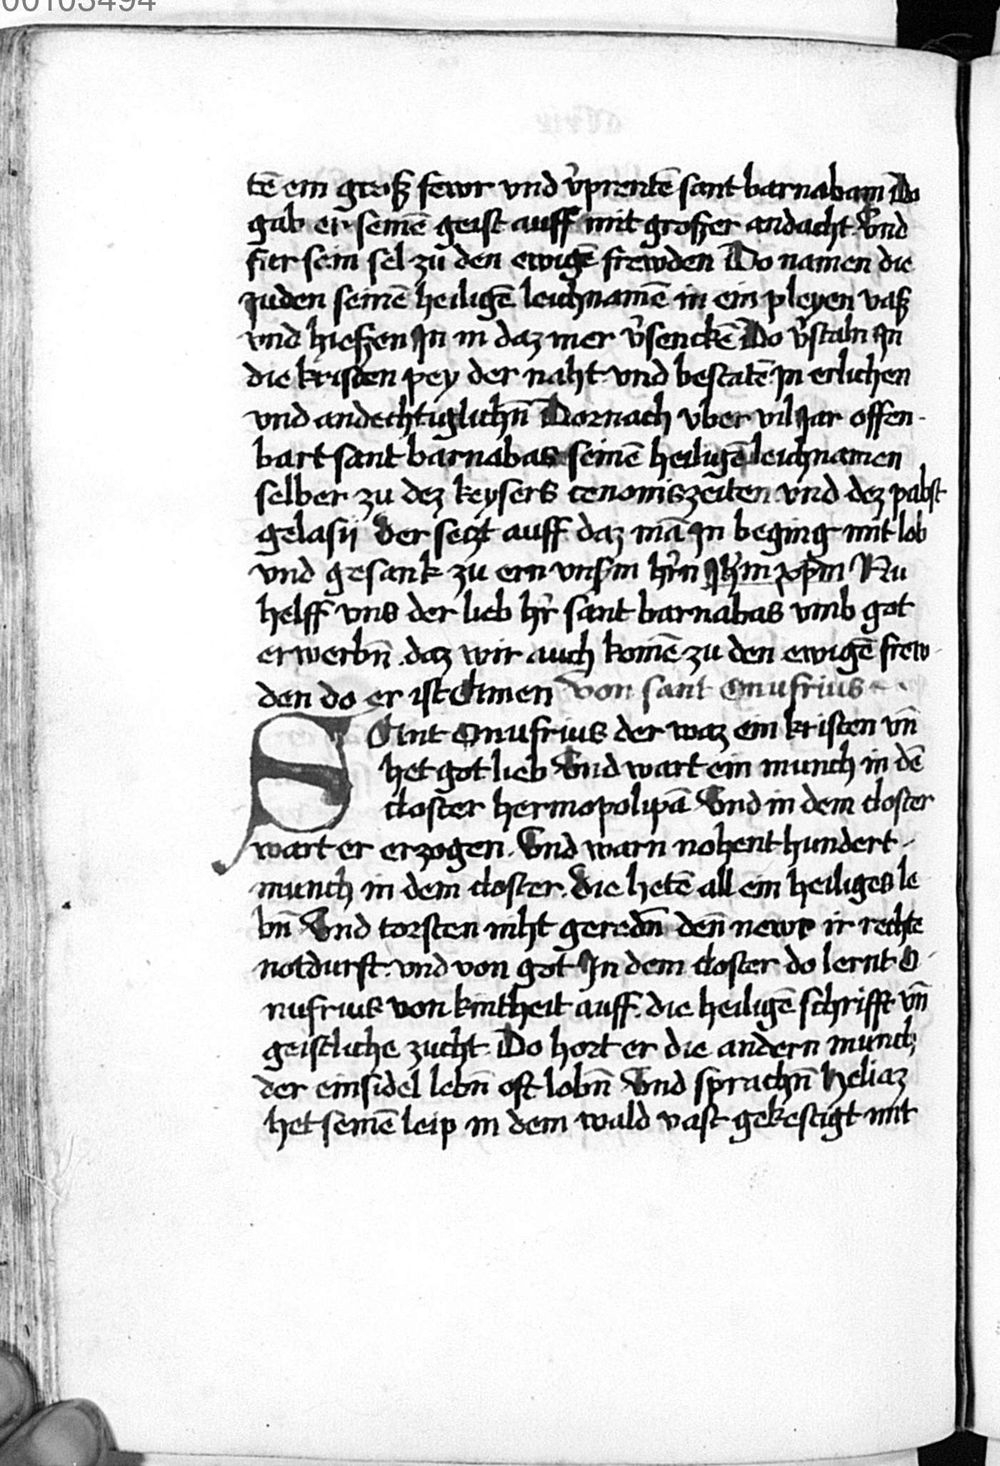 00103494
tē ein groß fewr vnd v̉prentē sant barnabam Do
gab er seinē geist auff mit großer andacht Vnd
fur sein sel zu den ewigē frewden Do namen die
Juden seinē heiligē leichnamē in ein pleyen vaß
vnd hießen Jn in daz mer v̉senckē Do v̉staln Jn
die kristen pey der naht vnd bestatē Jn erlichen
vnd andechtiglichn̄ Dornach vber vil Jar offen-
bart sant barnabas seinē heiligē leichnamen
selber zu dez keysers cenonis zeiten vnd dez pabst
gelasij der seczt auff daz mā Jn beging mit lob
vnd gesank zu ern vnsm̄ hr̄n Jhm̄ xpm̄ Nu
helff vns der lieb hr̄ sant barnabas vmb got
erwerbn̄ daz wir auch komē zu den ewigē frew-
den do er ist Amen von sant Onufrius
SAnt Onufrius der waz ein kristen vn̄
het got lieb Vnd wart ein munch in dē
closter hermopolipā Vnd in dem closter
wart er erzogen Vnd warn nohent hundert
munch in dem closter die hetē all ein heiliges le
bn̄ Vnd torsten niht geredn̄ den̄ newr ir rechte
notdurft vnd von got Jn dem closter do lernt O-
nufrius von kintheit auff die heiligē schrifft vn̄
geistliche zucht Do hort er die andern munch
der einsidel lebn̄ oft lobn̄ Vnd sprachn̄ heliaz
het seinē leip in dem wald vast gekestigt mit